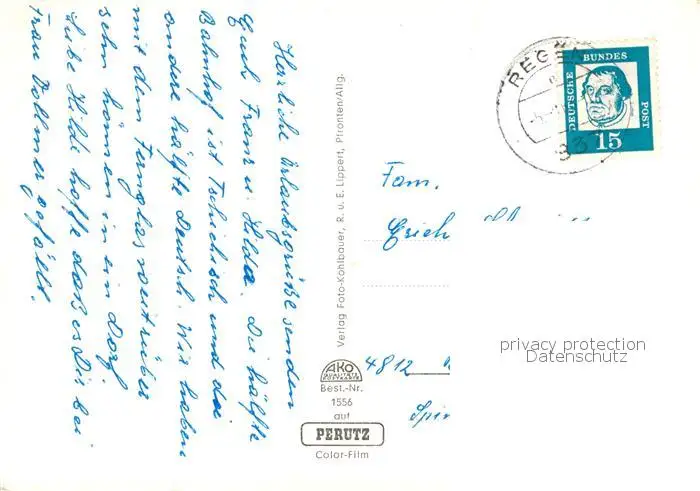 Herzliche Urlaubsgrüße senden
Euch Franz u. Hilda. Die hälfte
Bahnhof ist Tschichisch und die
andere hälfte Deutsch. Wir haben
mit dem Fernglas rüber
sehn können in ein Dorf.
Liebe Hilde hoffe daß es Dir bei
Frau Vollmer gefällt.
Verlag Foto-Kohlbauer, R. u. E. Lippert, Pfronten/Allg.
AKO
QUALITÄTS
POSTKARTE
Best.-Nr.
1556
auf
PERUTZ
Color-Film
REGEN
DEUTSCHE
BUNDES
POST
15
Fam.
Erich
4812
privacy protection
Datenschutz